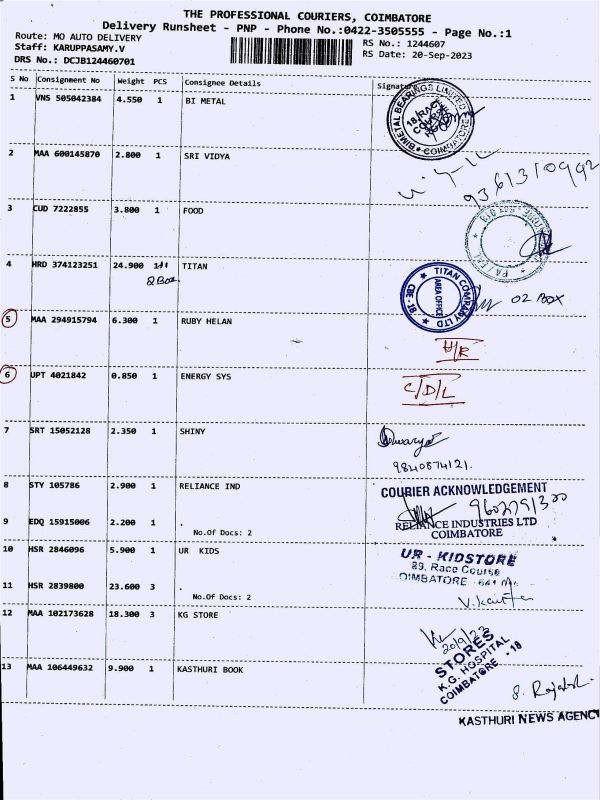 THE PROFESSIONAL COURIERS, COIMBATORE
Delivery Runsheet - PNP - Phone No.:0422-3505555 - Page No.:1
Route: MO AUTO DELIVERY
RS No.: 1244607
Staff: KARUPPASAMY.V
RS Date: 20-Sep-2023
DRS No.: DCJB124460701
S No Consignment No Weight PCS Consignee Details Signature
1 VNS 505042384 4.550 1 BI METAL
BIMETAL BEARINGS LIMITED
18/RACE COURSE
COIMBATORE
2 MAA 600145870 2.800 1 SRI VIDYA
9361310992
3 CUD 7222855 3.800 1 FOOD
4 HRD 374123251 24.900 TITAN
2 Box
TITAN COMPANY LTD
AREA OFFICE
CBE - 18
02 BOX
5 MAA 294915794 6.300 1 RUBY HELAN
H/R
6 UPT 4021842 0.850 1 ENERGY SYS
C/D/L
7 SRT 15052128 2.350 1 SHINY
9840874121.
8 STY 105786 2.900 1 RELIANCE IND
COURIER ACKNOWLEDGEMENT
9 EDQ 15915006 2.200 1 .
No.Of Docs: 2
RELIANCE INDUSTRIES LTD
COIMBATORE
10 HSR 2846096 5.900 1 UR KIDS
UR - KIDSTORE
89. Race Course
11 HSR 2839800 23.600 3 .
No.Of Docs: 2
12 MAA 102173628 18.300 3 KG STORE
20/9/23
STORES
K.G. HOSPITAL
COIMBATORE - 18
13 MAA 106449632 9.900 1 KASTHURI BOOK
KASTHURI NEWS AGENCY